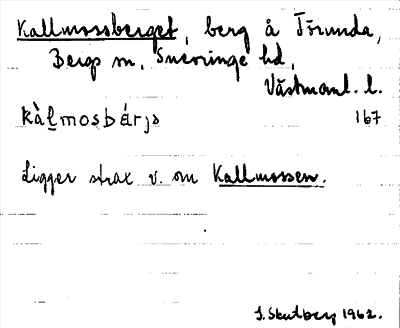 Kallmossberget, berg å Törunda,
Bergs sn, Snevringe hd,
Västmanl. l.
kàlmosbárjə 167
Ligger strax v. om Kallmossen.
S. Skutberg 1962.